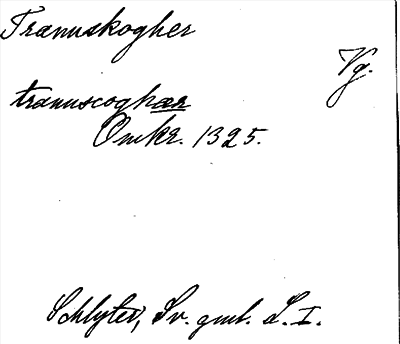 Trænuskogher
Vg.
trænuscoghær
Omkr. 1325.
Schlyter, Sv. gml. L. I.